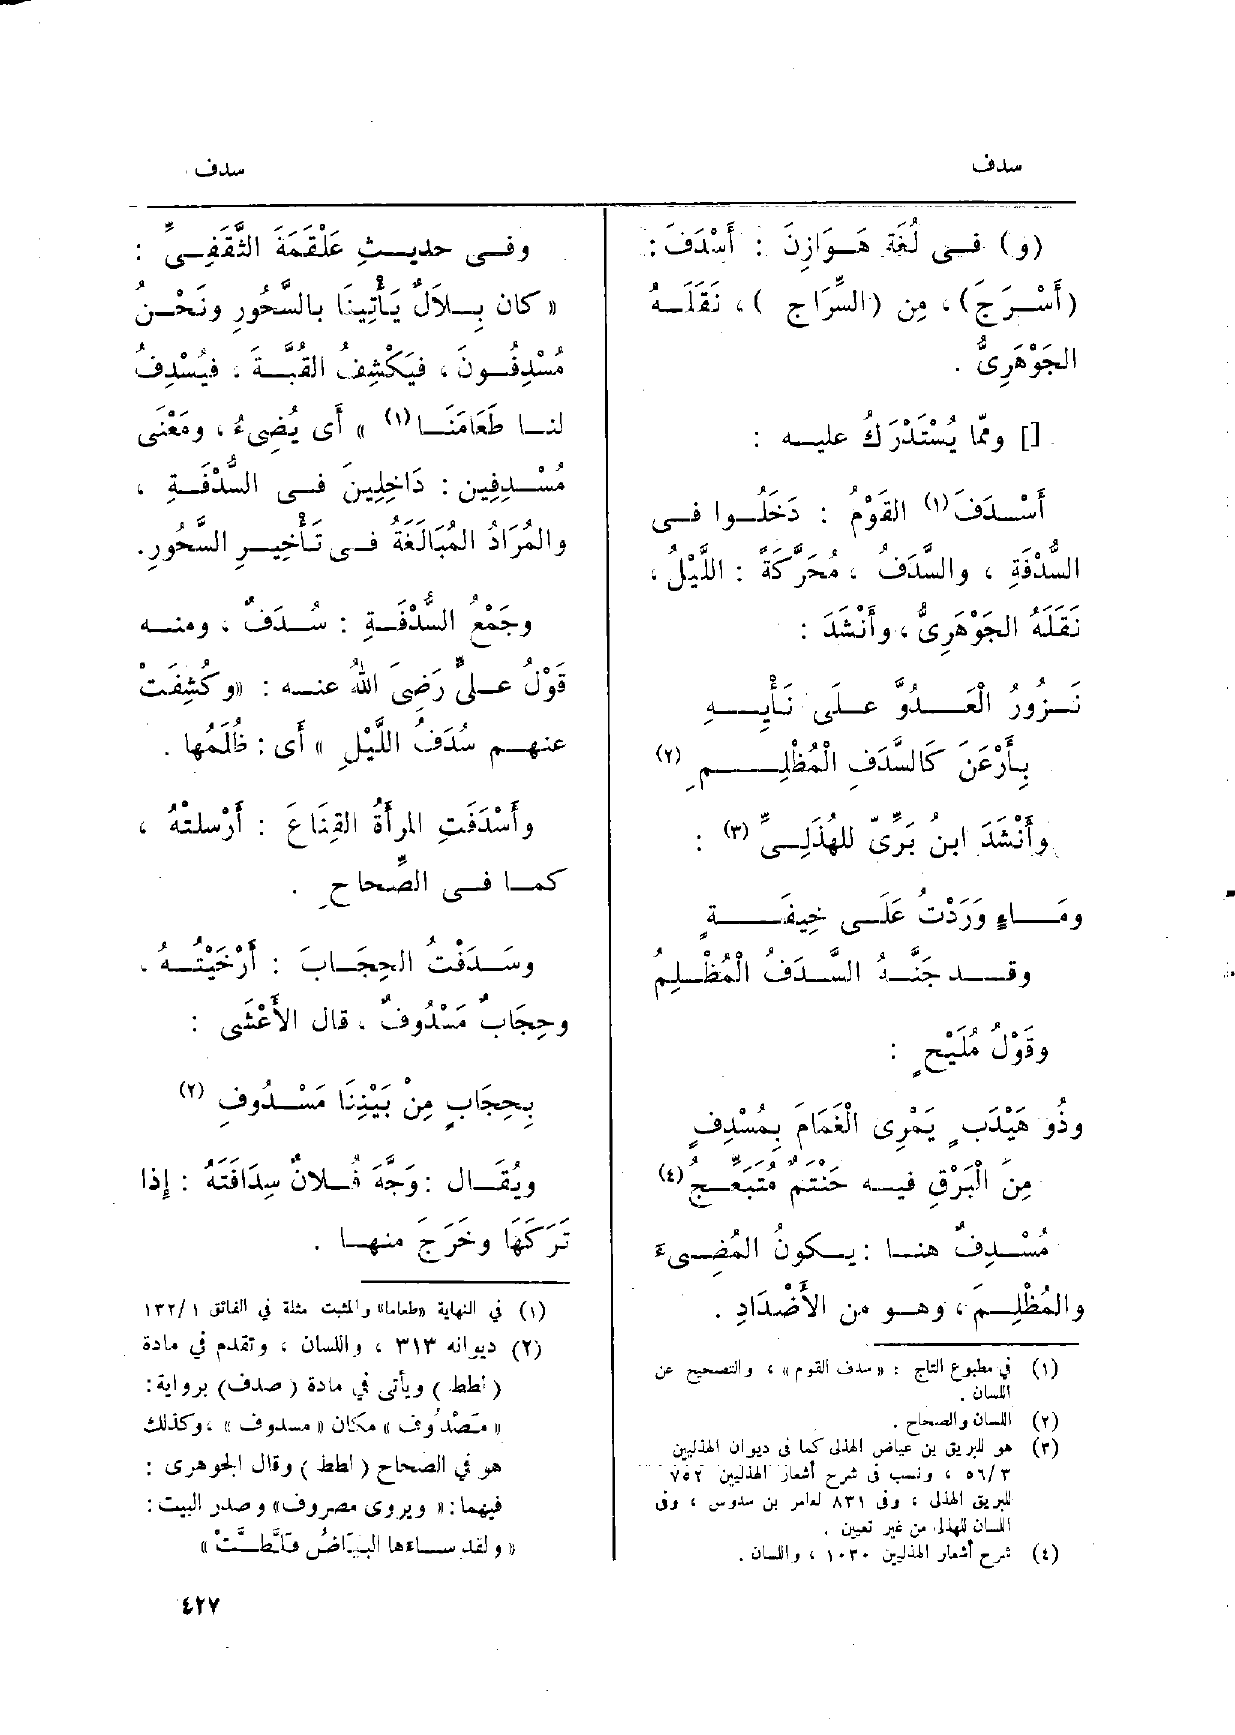 سدف
سدف
(و) فى لُغَةِ هَوَازِنَ : أَسْدَفَ :
(أَسْرَجَ)، مِن (السِّرَاجِ)، نَقَلَهُ
الجَوْهَرِىُّ .
[] وممّا يُسْتَدْرَكُ عليه :
أَسْدَفَ(١) القَوْمُ : دَخَلُوا فى
السُّدْفَةِ ، والسَّدَفُ ، مُحَرَّكَةً : اللَّيْلُ ،
نَقَلَهُ الجَوْهَرِىُّ ، وأَنْشَدَ :
نَزُورُ الْعَدُوَّ عَلَى نَأْيِهِ
بِأَرْعَنَ كَالسَّدَفِ الْمُظْلِمِ (٢)
وأَنْشَدَ ابنُ بَرِّىّ للهُذَلِىِّ (٣) :
ومَاءٍ وَرَدْتُ عَلَى خِيفَةٍ
وقد جَنَّهُ السَّدَفُ الْمُظْلِمُ
وقَوْلُ مُلَيْحٍ :
وذُو هَيْدَبٍ يَمْرِى الْغَمَامَ بِمُسْدِفٍ
مِنَ الْبَرْقِ فيه حَنْتَمٌ مُتَبَعِّجُ (٤)
مُسْدِفٌ هنا : يكونُ المُضِىءَ
والمُظْلِمَ ، وهو من الأَضْدَادِ .
(١) في مطبوع التاج : « سدف القوم » ، والتصحيح عن
اللسان .
(٢) اللسان والصحاح .
(٣) هو للبريق بن عياض الهذلى كما فى ديوان الهذليين
٥٦/٣ ، ونسب فى شرح أشعار الهذليين ٧٥٢
للبريق الهذلى ، وفى ٨٣١ لعامر بن سدوس ، وفى
اللسان للهذلى من غير تعيين .
(٤) شرح أشعار الهذليين ١٠٣٠ ، واللسان .
وفى حديثِ عَلْقَمَةَ الثَّقَفِىِّ :
« كان بِلاَلٌ يَأْتِينَا بالسَّحُورِ ونَحْنُ
مُسْدِفُونَ ، فيَكْشِفُ القُبَّةَ ، فيُسْدِفُ
لنا طَعَامَنَا(١) » أَى يُضِىءُ ، ومَعْنَى
مُسْدِفِين : دَاخِلِينَ فى السُّدْفَةِ ،
والمُرَادُ المُبَالَغَةُ فى تَأْخِيرِ السَّحُورِ.
وجَمْعُ السُّدْفَةِ : سُدَفٌ ، ومنه
قَوْلُ علىٍّ رَضِىَ اللهُ عنه : «وكُشِفَتْ
عنهم سُدَفُ اللَّيْلِ » أَى : ظُلَمُها .
وأَسْدَفَتِ المرأَةُ القِنَاعَ : أَرْسلتْهُ ،
كما فى الصِّحاحِ .
وسَدَفْتُ الحِجَابَ : أَرْخَيْتُهُ .
وحِجَابٌ مَسْدُوفٌ ، قال الأَعْشَى :
بِحِجَابٍ مِنْ بَيْنِنَا مَسْدُوفِ (٢)
ويُقَال : وَجَّهَ فُلانٌ سِدَافَتَهُ : إِذا
تَرَكَهَا وخَرَجَ منها .
(١) في النهاية «طعاما» والمثبت مثله في الفائق ١٣٢/١
(٢) ديوانه ٣١٣ ، واللسان ، وتقدم في مادة
( لطط ) ويأتى في مادة ( صدف) برواية:
« مَصْدُوف » مكان « مسدوف » ، وكذلك
هو في الصحاح ( لطط ) وقال الجوهرى :
فيهما: « ويروى مصروف» وصدر البيت :
« ولقد ساءها البَيَاضُ فلَطَّتْ »
٤٢٧